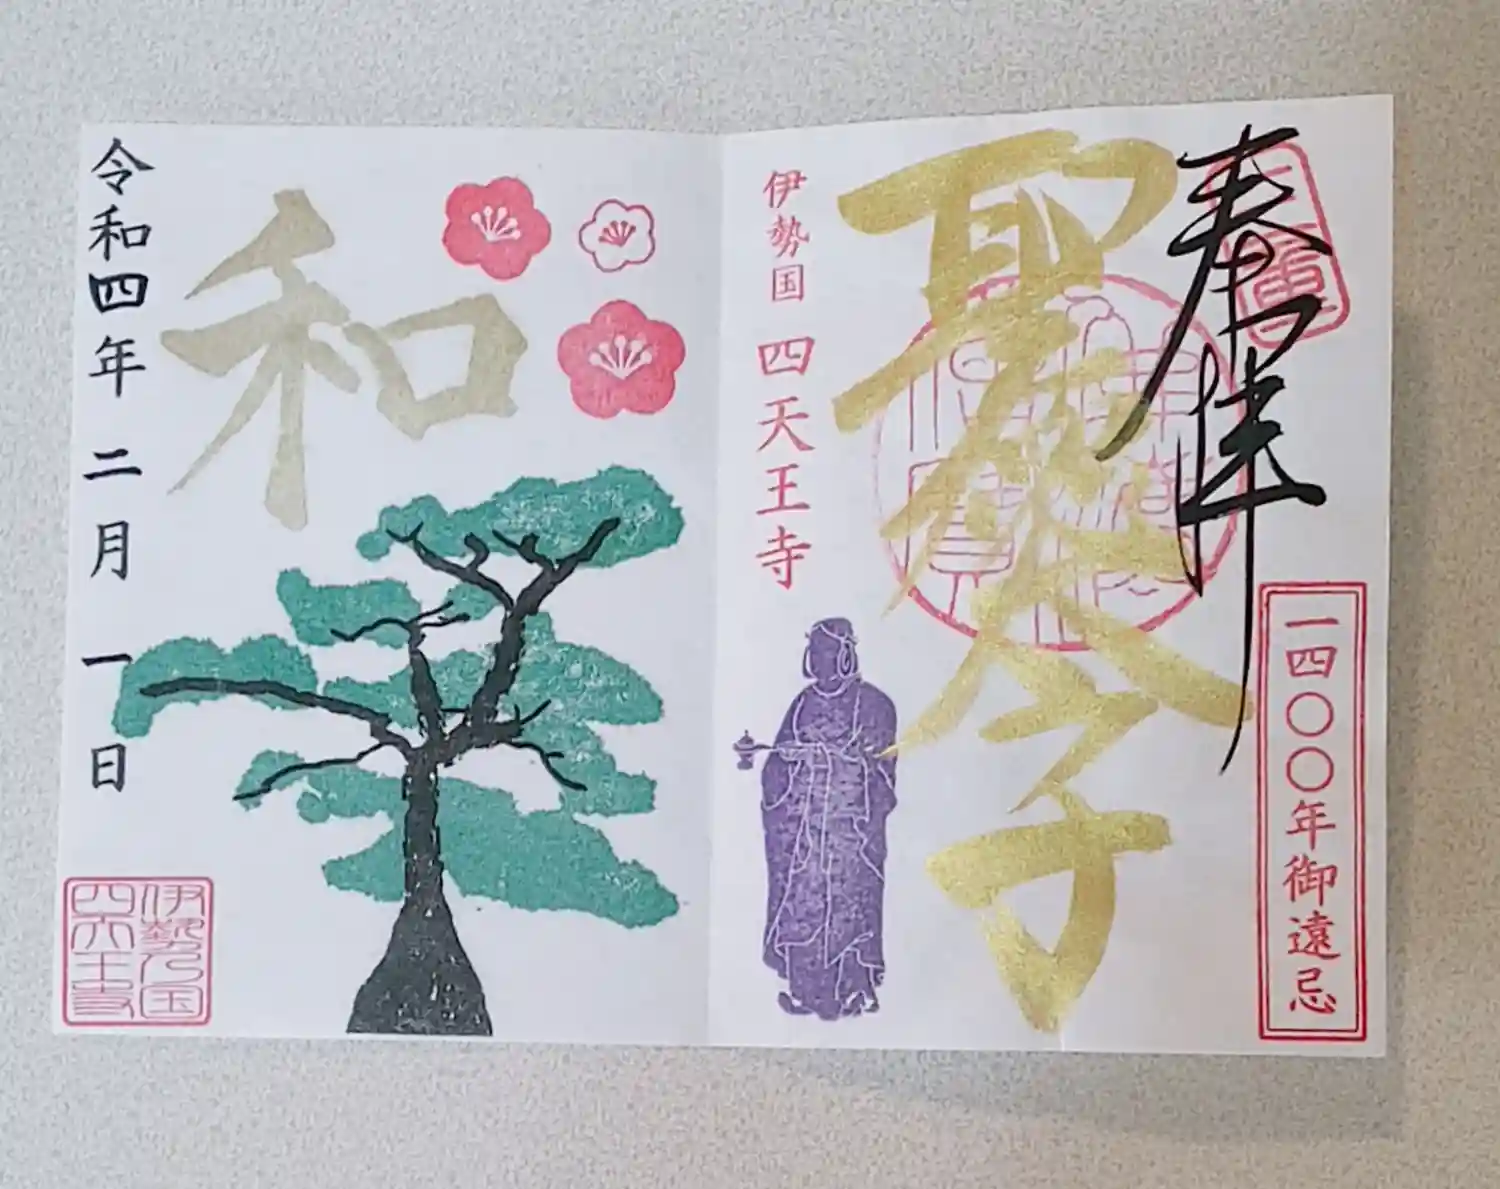 奉拝
一四〇〇年御遠忌
聖徳太子
伊勢国 四天王寺
和
令和四年 二月 一日
伊勢乃国
四天王寺